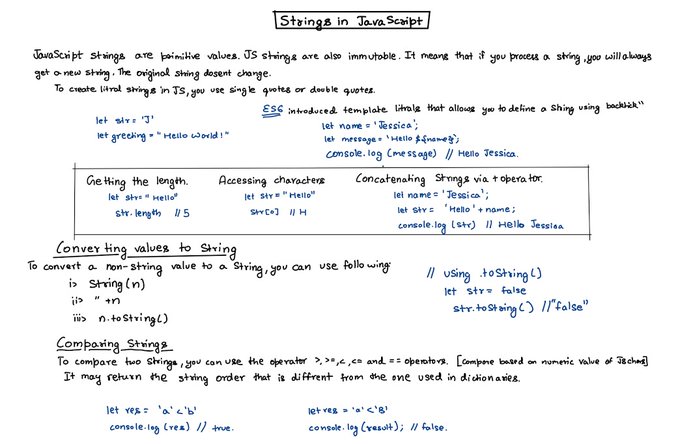 Strings in JavaScript
JavaScript strings are primitive values. JS strings are also immutable. It means that if you process a string, you will always
get a new string. The original string dosent change.
To create litral strings in JS, you use single quotes or double quotes.
ES6 introduced template litrals that allows you to define a String using backtick"
let str = 'J'
let greeting = "Hello World!"
let name = 'Jessica';
let message = 'Hello ${name}';
console.log (message) // Hello Jessica.
Getting the length.
let str= "Hello"
str.length // 5
Accessing characters
let str = "Hello"
str[0] // H
Concatenating Strings via + operator.
let name = 'Jessica';
let str = 'Hello' + name;
console.log (str) // Hello Jessica
Converting values to String
To convert a non-string value to a String, you can use following:
i> String(n)
ii> " +n
iii> n.toString()
// using .toString()
let str = false
str.toString() //"false"
Comparing Strings
To compare two Strings, you can use the operator >, >=, <, <= and == operators. [Compare based on numeric value of JS chars]
It may return the string order that is diffrent from the one used in dictionaries.
let res = 'a' < 'b'
console.log (res) // true.
let res = 'a' < 'B'
console.log (result); // false.